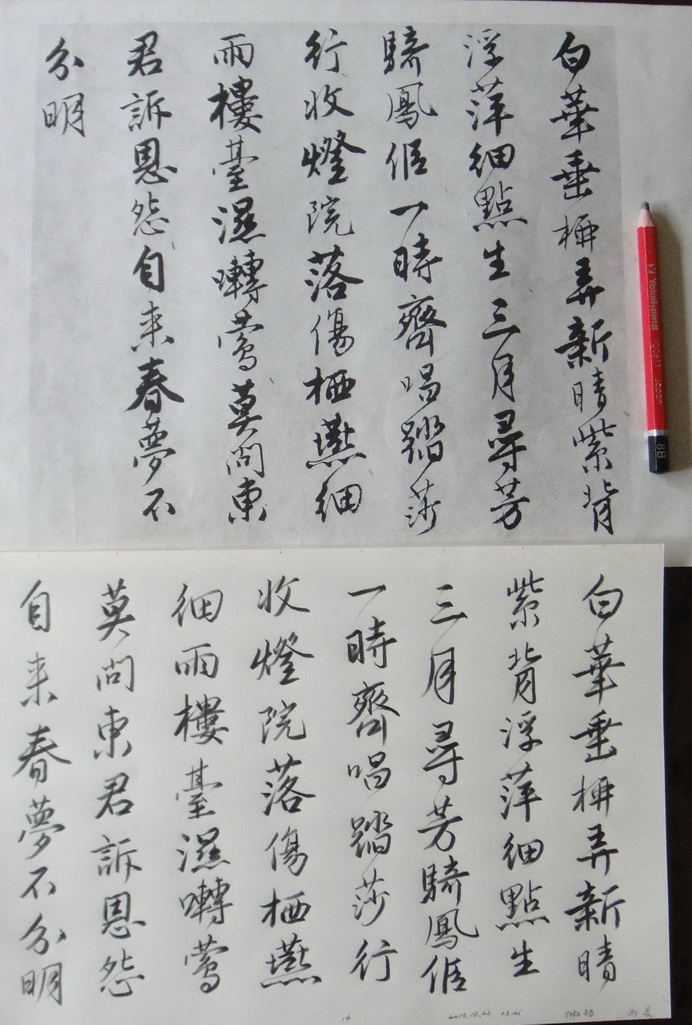 白華垂弄新晴紫背
浮萍細點生三月尋芳
騎鳳侶一時齊唱踏莎
行收燈院落傷栖燕細
雨樓臺濕囀鶯莫問東
君訴恩怨自来春夢不
分明
Yokohama
8B
白華垂弄新晴
紫背浮萍細點生
三月尋芳騎鳳侶
一時齊唱踏莎行
收燈院落傷栖燕
細雨樓臺濕囀鶯
莫問東君訴恩怨
自来春夢不分明
14